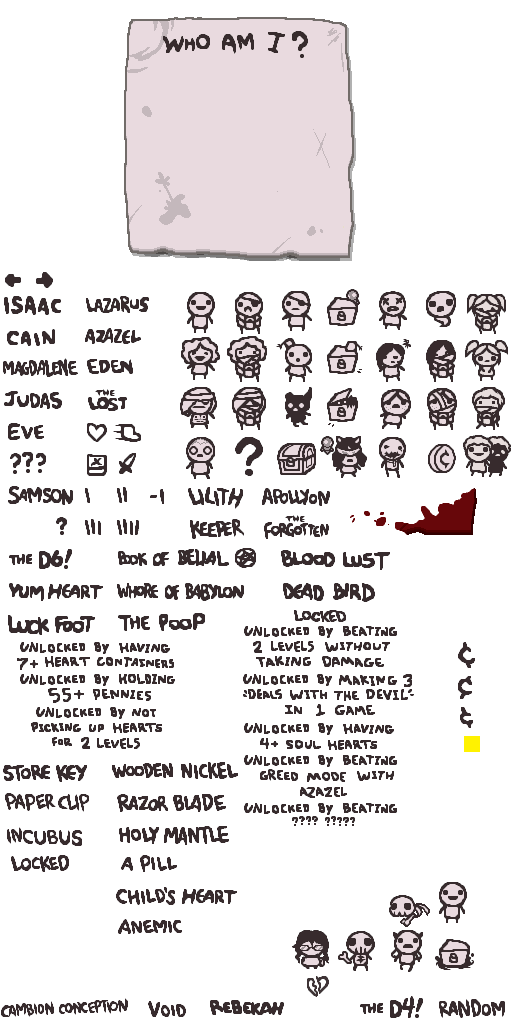 WHO AM I?
ISAAC LAZARUS
CAIN AZAZEL
MAGDALENE EDEN
JUDAS THE LOST
EVE
???
?
SAMSON I II -I LILITH APOLLYON
? III IIII KEEPER THE FORGOTTEN
¢
THE D6! BOOK OF BELIAL BLOOD LUST
YUM HEART WHORE OF BABYLON DEAD BIRD
LUCK FOOT THE POOP
UNLOCKED BY HAVING
7+ HEART CONTAINERS
UNLOCKED BY HOLDING
55+ PENNIES
UNLOCKED BY NOT
PICKING UP HEARTS
FOR 2 LEVELS
LOCKED
UNLOCKED BY BEATING
2 LEVELS WITHOUT
TAKING DAMAGE
UNLOCKED BY MAKING 3
"DEALS WITH THE DEVIL"
IN 1 GAME
UNLOCKED BY HAVING
4+ SOUL HEARTS
UNLOCKED BY BEATING
GREED MODE WITH
AZAZEL
UNLOCKED BY BEATING
???? ?????
¢
¢
¢
STORE KEY WOODEN NICKEL
PAPER CLIP RAZOR BLADE
INCUBUS HOLY MANTLE
LOCKED A PILL
CHILD'S HEART
ANEMIC
CAMBION CONCEPTION VOID REBEKAH THE D4! RANDOM